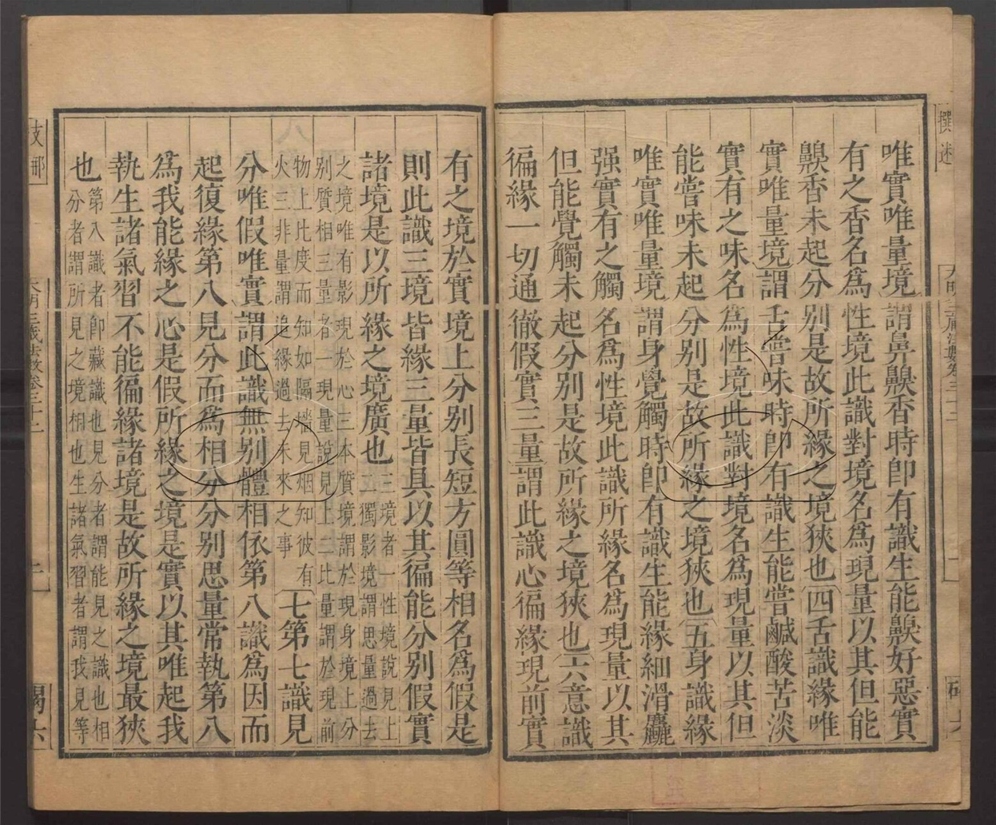 撰述
唯實唯量境謂鼻齅香時卽有識生能齅好惡實
有之香名爲性境此識對境名爲現量以其但能
齅香未起分別是故所緣之境狹也四舌識緣唯
實唯量境謂舌嘗味時卽有識生能嘗鹹酸苦淡
實有之味名爲性境此識對境名爲現量以其但
能嘗味未起分別是故所緣之境狹也五身識緣
唯實唯量境謂身覺觸時卽有識生能緣細滑麤
强實有之觸名爲性境此識所緣名爲現量以其
但能覺觸未起分別是故所緣之境狹也六意識
徧緣一切通徹假實三量謂此識心徧緣現前實
有之境於實境上分別長短方圓等相名爲假是
則此識三境皆緣三量皆具以其徧能分別假實
諸境是以所緣之境廣也三境者一性境說見上二獨影境謂思量過去
之境唯有影現於心三本質境謂於現身境上分
別質相三量者一現量說見上二比量謂於現前
物上比度而知如隔墻見烟知彼有
火三非量謂追緣過去未來之事七第七識見
分唯假唯實謂此識無別體相依第八識爲因而
起復緣第八見分而爲相分分別思量常執第八
爲我能緣之心是假所緣之境是實以其唯起我
執生諸氣習不能徧緣諸境是故所緣之境最狹
也第八識者卽藏識也見分者謂能見之識也相
分者謂所見之境相也生諸氣習者謂我見等
支那